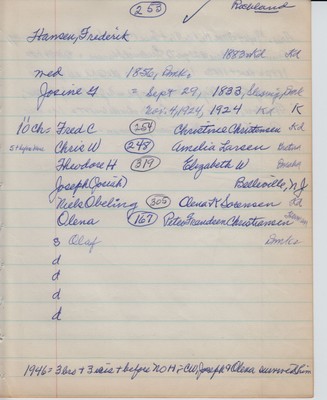 (253)
Rowland
Hansen, Frederik
1883 Kd Kd
med 1856, Dmk,
Josine G = Sept 29, 1833, Dmk
Nov. 4, 1924, 1924 K K
11 Chs Fred C (254) Christine Christensen Kd
Chris W (248) Amelia Larsen
Theodore H (319) Elizabeth W
Joseph (Josiah) Belleville, NJ
Niels Obeling (305) Olena K Sorensen Kd
Olena (167) Peter Christiansen
s Olaf Dmk
d
d
d
d
1946 = 3 bro + 3 sis + before NOH; CW, Joseph & Olena survived him